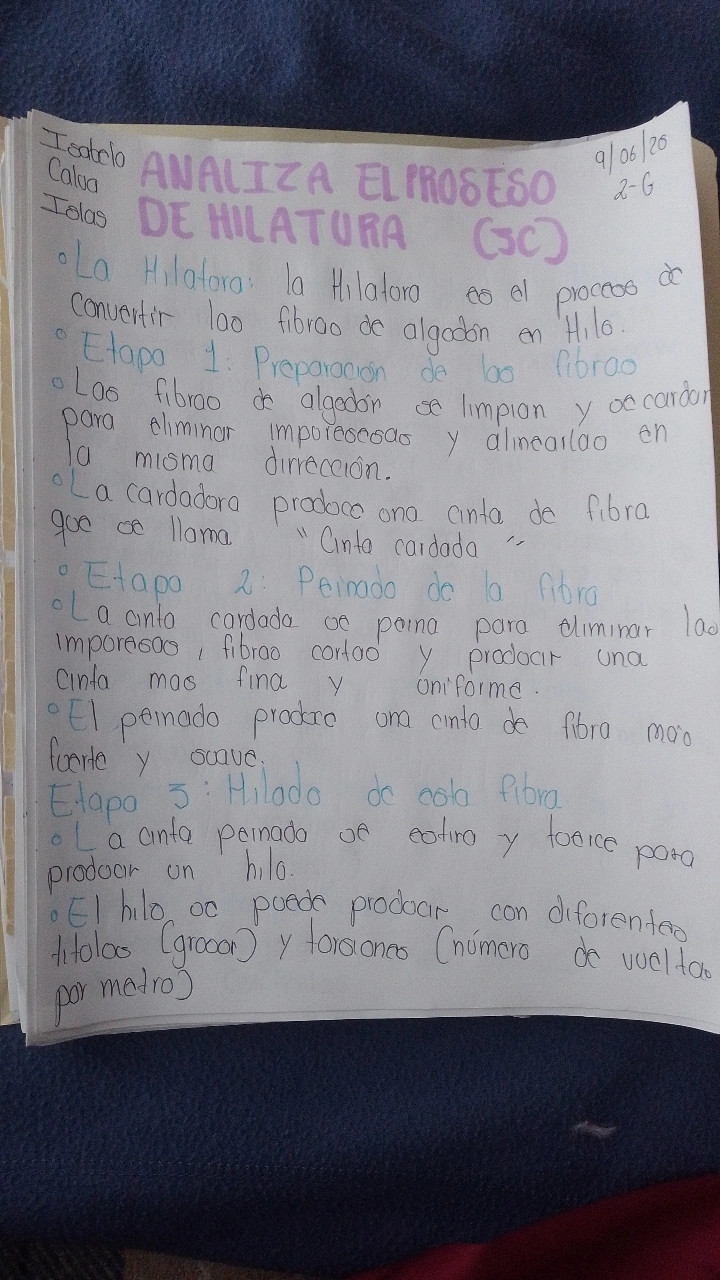 Isabela
Calva
Islas
9/06/26
2-G
ANALIZA EL PROSESO
DE HILATURA (SC)
°La Hilatura: la Hilatura es el proceso de
convertir las fibras de algodón en Hilo.
° Etapa 1: Preparación de las fibras
°Las fibras de algodón se limpian y se cardan
para eliminar impuresesas y alinearlas en
la misma dirrección.
°La cardadora produce una cinta de fibra
que se llama "Cinta cardada"
° Etapa 2: Peinado de la fibra
°La cinta cardada se peina para eliminar las
impuresas, fibras cortas y producir una
cinta mas fina y uniforme.
°El peinado produce una cinta de fibra más
fuerte y suave.
Etapa 3: Hilado de esta fibra
°La cinta peinada se estira y tuerce para
producir un hilo.
°El hilo se puede producir con diferentes
titulos (grosor) y torsiones (número de vueltas
por metro)